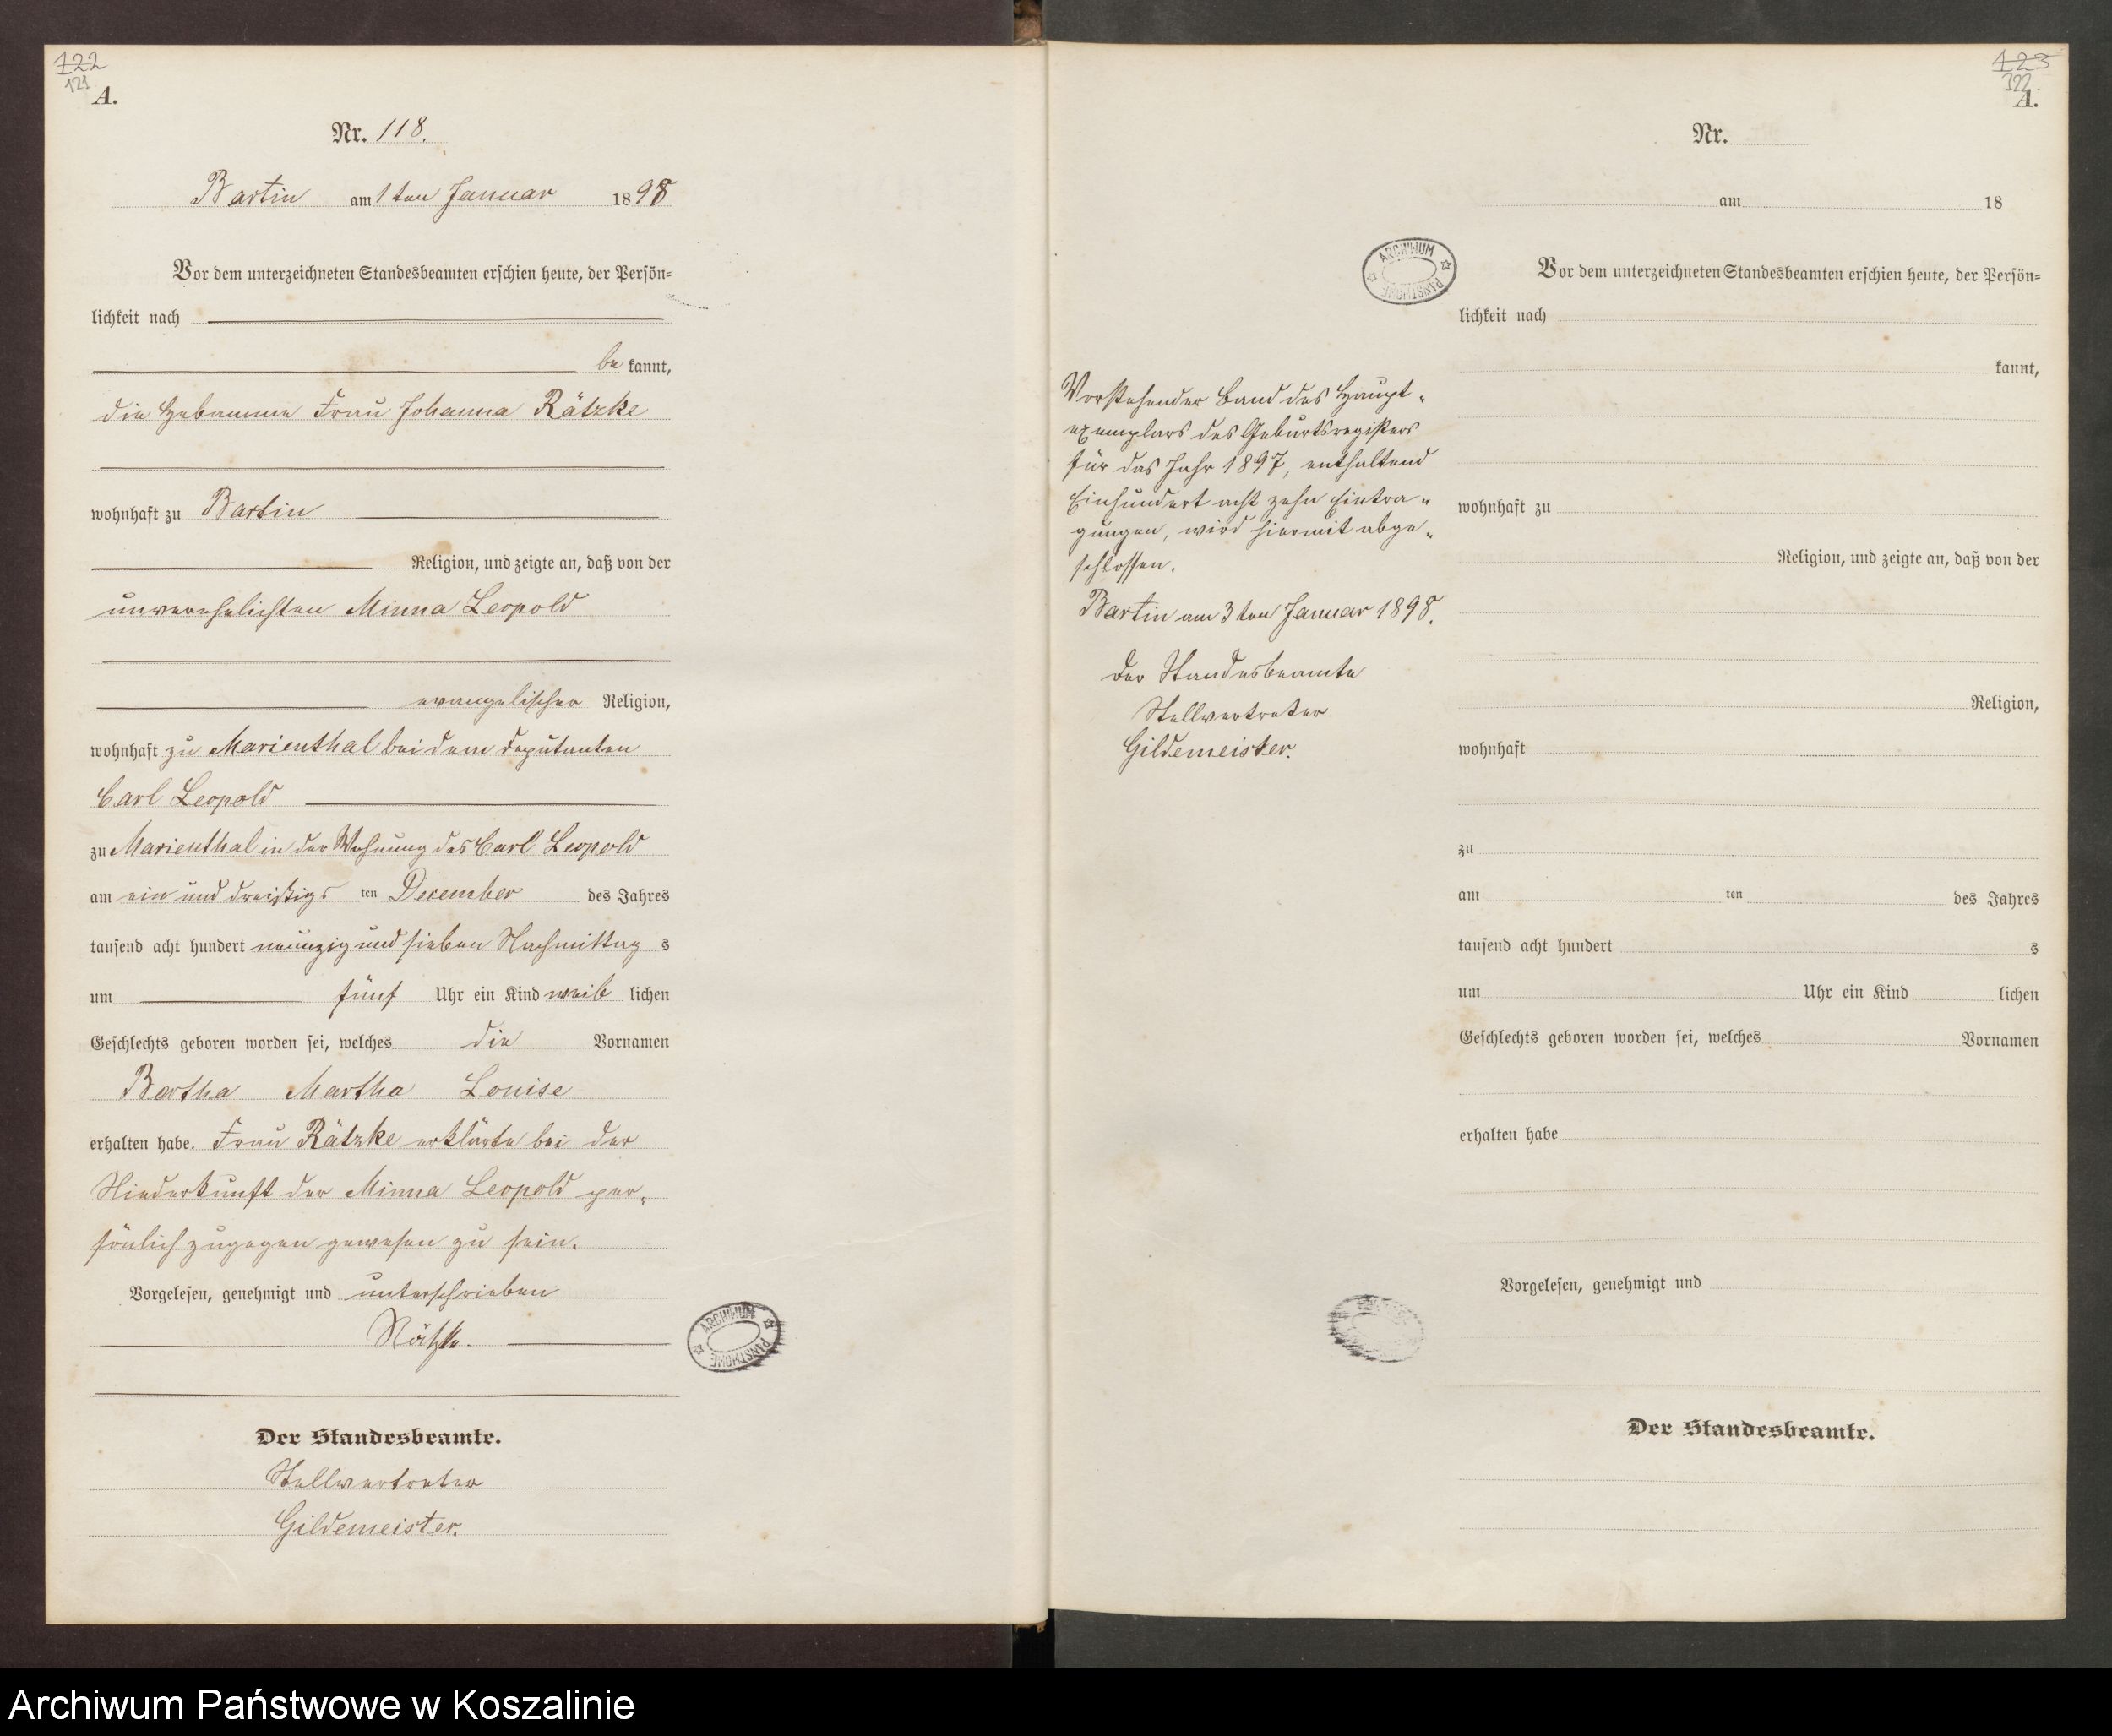 122
121
A.
Nr. 118.
Bartin am 1ten Januar 1898
Vor dem unterzeichneten Standesbeamten erschien heute, der Persön=
lichkeit nach
be kannt,
die Hebamme Frau Johanna Rätzke
wohnhaft zu Bartin
Religion, und zeigte an, daß von der
unverehelichten Minna Leopold
evangelischer Religion,
wohnhaft zu Marienthal bei dem Deputanten
Carl Leopold
zu Marienthal in der Wohnung des Carl Leopold
am ein und dreißigs ten December des Jahres
tausend acht hundert neunzig und sieben Nachmittag s
um fünf Uhr ein Kind weib lichen
Geschlechts geboren worden sei, welches die Vornamen
Bertha Martha Louise
erhalten habe. Frau Rätzke erklärte bei der
Niederkunft der Minna Leopold per„
sönlich zugegen gewesen zu sein.
Vorgelesen, genehmigt und unterschrieben
Rätzke.
ARCHIWUM PAŃSTWOWE
Der Standesbeamte.
Stellvertreter
Gildemeister.
123
122
A.
Nr.
am 18
ARCHIWUM PAŃSTWOWE
Vor dem unterzeichneten Standesbeamten erschien heute, der Persön=
lichkeit nach
kannt,
Vorstehender Band des Haupt„
exemplars des Geburtsregisters
für das Jahr 1897, enthaltend
Einhundert acht zehn Eintra„
gungen, wird hiermit abge„
schlossen.
Bartin am 3ten Januar 1898.
Der Standesbeamte
Stellvertreter
Gildemeister.
wohnhaft zu
Religion, und zeigte an, daß von der
Religion,
wohnhaft
zu
am ten des Jahres
tausend acht hundert s
um Uhr ein Kind lichen
Geschlechts geboren worden sei, welches Vornamen
erhalten habe
Vorgelesen, genehmigt und
Der Standesbeamte.
Archiwum Państwowe w Koszalinie